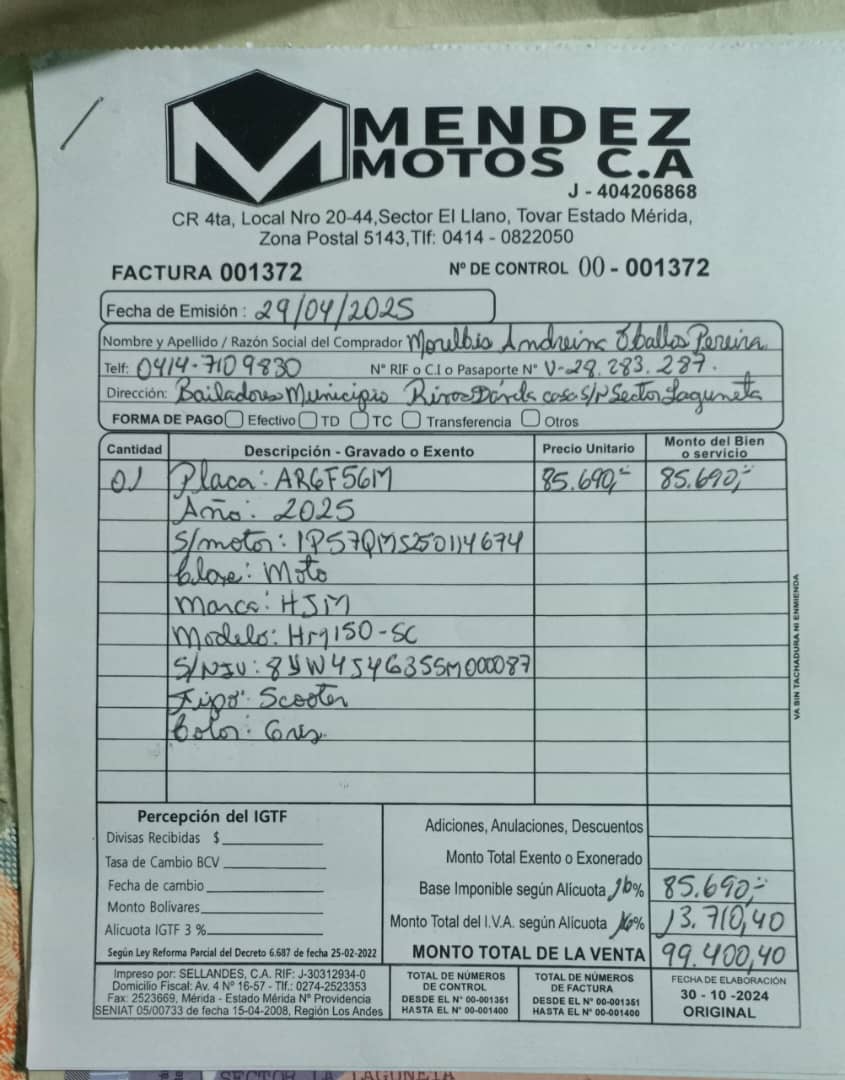 MENDEZ
MOTOS C.A
J - 404206868
CR 4ta, Local Nro 20-44,Sector El Llano, Tovar Estado Mérida,
Zona Postal 5143,Tlf: 0414 - 0822050
FACTURA 001372 Nº DE CONTROL 00 - 001372
Fecha de Emisión : 29/04/2025
Nombre y Apellido / Razón Social del Comprador Morelbis Andreina Oballos Pereira
Telf: 0414-7109830 N° RIF o C.I o Pasaporte N° V-28.283.287.
Dirección: Bailadores Municipio Rivas Dávila casa S/N Sector Laguneta
FORMA DE PAGO Efectivo TD TC Transferencia Otros
Cantidad Descripción - Gravado o Exento Precio Unitario Monto del Bien o servicio
01 Placa: AR6F56M 85.690,- 85.690,-
Año: 2025
S/motor: 1P57QMS250114674
Clase: Moto
Marca: HJM
Modelo: HM150-SC
S/NIV: 8YW4S4G35SM000087
Tipo: Scooter
Color: Gris.
VA SIN TACHADURA NI ENMIENDA
Percepción del IGTF
Divisas Recibidas $
Tasa de Cambio BCV
Fecha de cambio
Monto Bolívares
Alicuota IGTF 3 %
Según Ley Reforma Parcial del Decreto 6.687 de fecha 25-02-2022
Adiciones, Anulaciones, Descuentos
Monto Total Exento o Exonerado
Base Imponible según Alicuota 16% 85.690,-
Monto Total del I.V.A. según Alicuota 16% 13.710,40
MONTO TOTAL DE LA VENTA 99.400,40
Impreso por: SELLANDES, C.A. RIF: J-30312934-0
Domicilio Fiscal: Av. 4 Nº 16-57 - Tlf.: 0274-2523353
Fax: 2523669, Mérida - Estado Mérida Nº Providencia
SENIAT 05/00733 de fecha 15-04-2008, Región Los Andes
TOTAL DE NÚMEROS
DE CONTROL
DESDE EL N° 00-001351
HASTA EL N° 00-001400
TOTAL DE NÚMEROS
DE FACTURA
DESDE EL N° 00-001351
HASTA EL N° 00-001400
FECHA DE ELABORACIÓN
30 - 10 -2024
ORIGINAL
SECTOR LA LAGUNETA